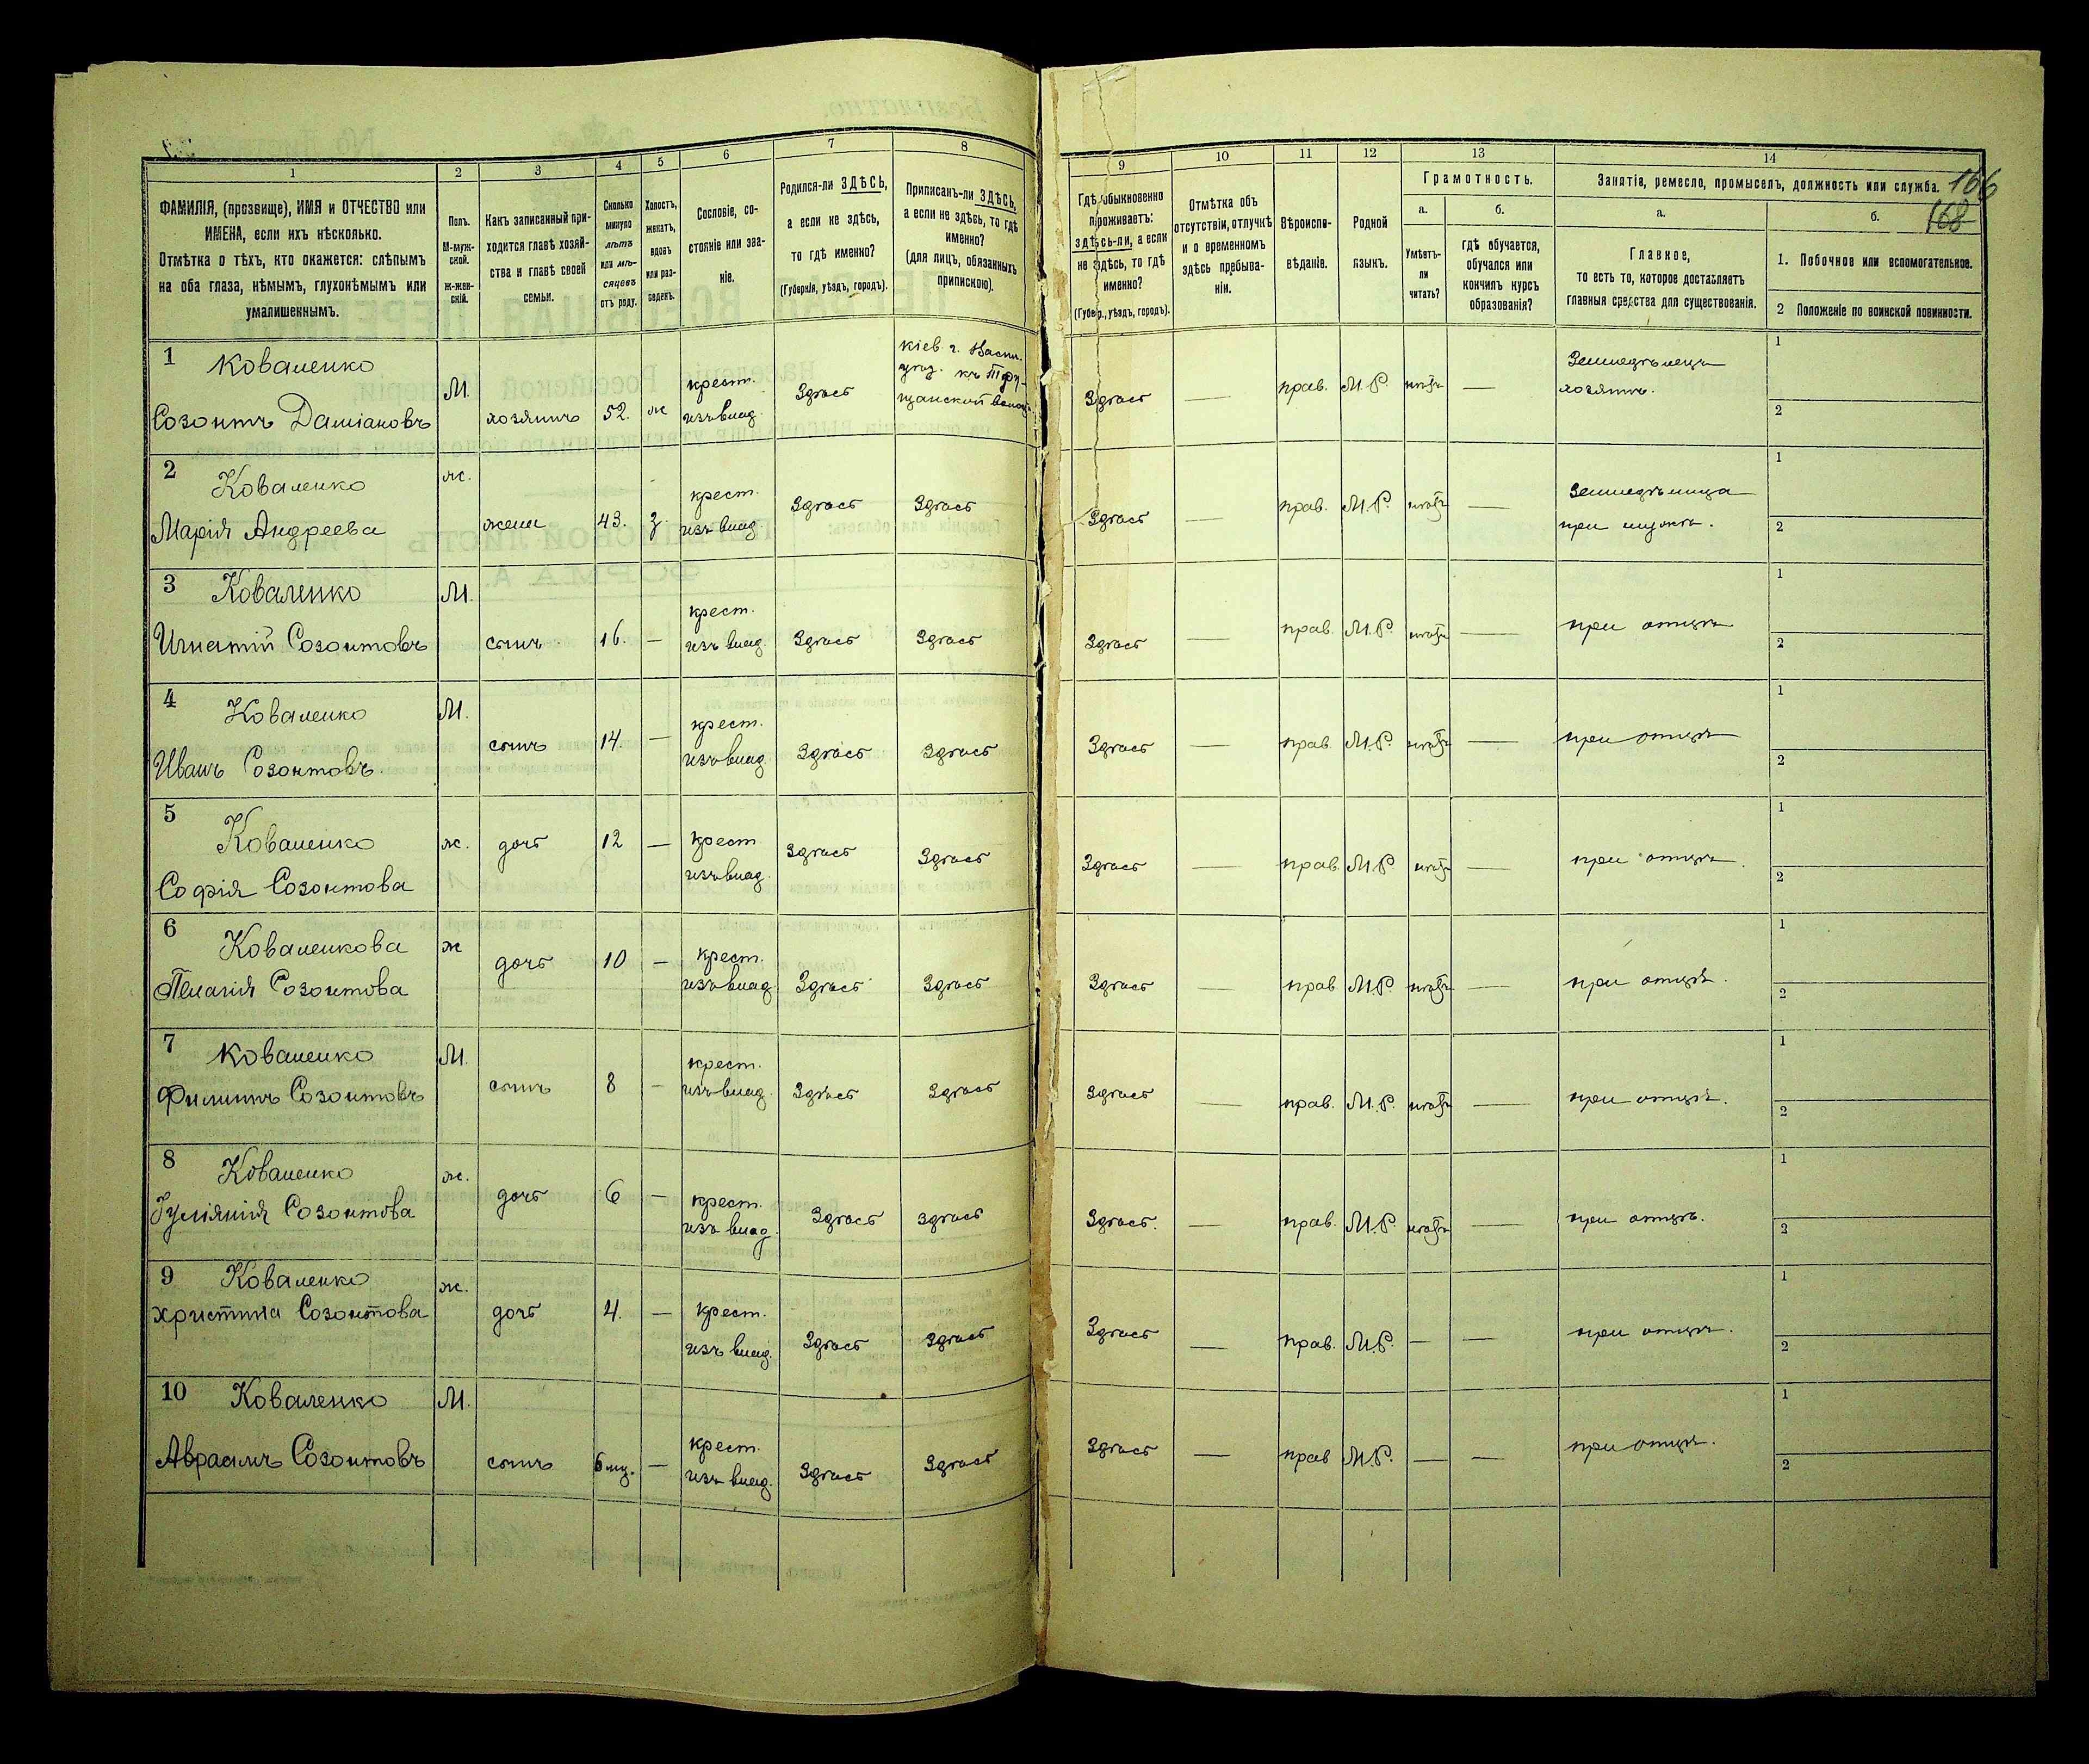 1
2
3
4
5
6
7
8
9
10
11
12
13
14
ФАМИЛІЯ, (прозвище), ИМЯ и ОТЧЕСТВО или
ИМЕНА, если ихъ нѣсколько.
Отмѣтка о тѣхъ, кто окажется: слѣпымъ
на оба глаза, нѣмымъ, глухонѣмымъ или
умалишеннымъ.
Полъ.
М-муж-
ской.
Ж-жен-
скій.
Какъ записанный при-
ходится главѣ хозяй-
ства и главѣ своей
семьи.
Сколько
минуло
лѣтъ
или мѣ-
сяцевъ
отъ роду.
Холостъ,
женатъ,
вдовъ
или раз-
веденъ.
Сословіе, со-
стояніе или зва-
ніе.
Родился-ли ЗДѢСЬ,
а если не здѣсь,
то гдѣ именно?
(Губернія, уѣздъ, городъ).
Приписанъ-ли ЗДѢСЬ,
а если не здѣсь, то гдѣ
именно?
(для лицъ, обязанныхъ
припискою).
Гдѣ обыкновенно
проживаетъ:
здѣсь-ли, а если
не здѣсь, то гдѣ
именно?
(Губер., уѣздъ, городъ).
Отмѣтка объ
отсутствіи, отлучкѣ
и о временномъ
здѣсь пребыва-
ніи.
Вѣроиспо-
вѣданіе.
Родной
языкъ.
Грамотность.
а.
Умѣетъ-
ли
читать?
б.
гдѣ обучается,
обучался или
кончилъ курсъ
образованія?
Занятіе, ремесло, промыселъ, должность или служба.
166
168
а.
Главное,
то есть то, которое доставляетъ
главныя средства для существованія.
б.
1. Побочное или вспомогательное.
2 Положеніе по воинской повинности.
1 Коваленко
Созонтъ Даміановъ
М.
хозяинъ
52.
ж
крест.
изъ влад.
Здѣсь
Кіев. г. Васил.
уѣзд.
Здѣсь
—
прав.
М.Р.
нѣтъ
—
Земледѣлецъ
хозяинъ.
1
2
2 Коваленко
Марія Андреева
ж.
жена
43.
з.
крест.
изъ влад.
Здѣсь
Здѣсь
Здѣсь
—
прав.
М.Р.
нѣтъ
—
Земледѣлица
при мужѣ.
1
2
3 Коваленко
Игнатій Созонтовъ
М.
сынъ
16.
—
крест.
изъ влад.
Здѣсь
Здѣсь
Здѣсь
—
прав.
М.Р.
нѣтъ
—
при отцѣ
1
2
4 Коваленко
Иванъ Созонтовъ.
М.
сынъ
14.
—
крест.
изъ влад
Здѣсь
Здѣсь
Здѣсь
—
прав.
М.Р.
нѣтъ
—
при отцѣ
1
2
5
Коваленко
Софія Созонтова
ж.
дочь
12
—
крест
изъ влад.
Здѣсь
Здѣсь
Здѣсь
—
прав.
М.Р.
нѣтъ
—
при отцѣ.
1
2
6 Коваленкова
Пелагія Созонтова
ж
дочь
10
—
крест.
изъ влад
Здѣсь
Здѣсь
Здѣсь
—
прав
М.Р.
нѣтъ
—
при отцѣ.
1
2
7 Коваленко
Филипъ Созонтовъ
М.
сынъ
8
—
крест.
изъ влад.
Здѣсь
Здѣсь
Здѣсь
—
прав.
М.Р.
нѣтъ
—
при отцѣ.
1
2
8 Коваленко
Іуліянія Созонтова
ж.
дочь
6
—
крест.
изъ влад.
Здѣсь
Здѣсь
Здѣсь.
—
прав.
М.Р.
нѣтъ
—
при отцѣ.
1
2
9 Коваленко
Христина Созонтова
ж.
дочь
4.
—
крест.
изъ влад.
Здѣсь
Здѣсь
Здѣсь
—
прав.
М.Р.
—
—
при отцѣ.
1
2
10 Коваленко
Авраамъ Созонтовъ
М.
сынъ
6 мц.
—
крест.
изъ влад.
Здѣсь
Здѣсь
Здѣсь
—
прав
М.Р.
—
—
при отцѣ.
1
2